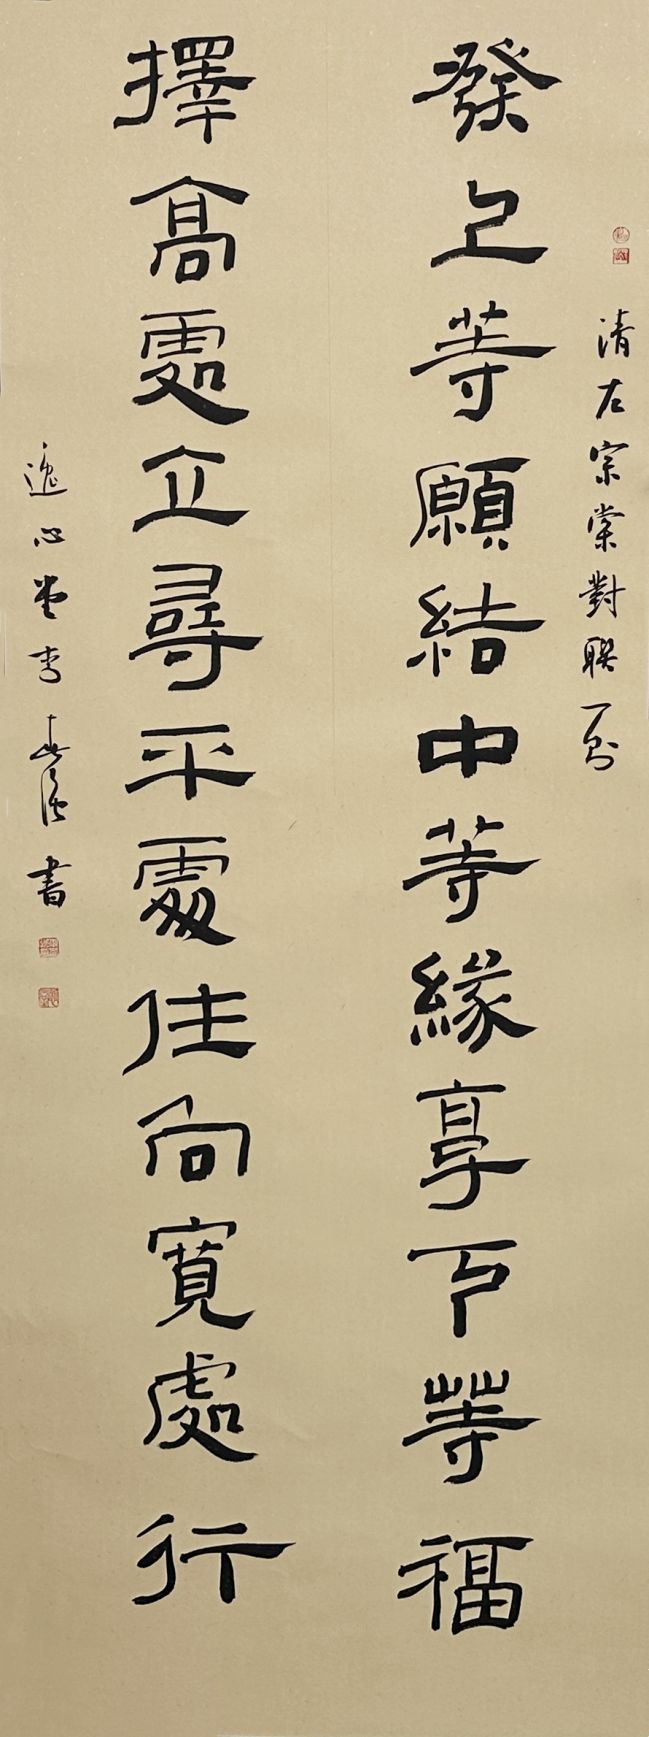 清左宗棠對聯一則
發上等願結中等緣享下等福
擇高處立尋平處住向寬處行
逸心堂李書